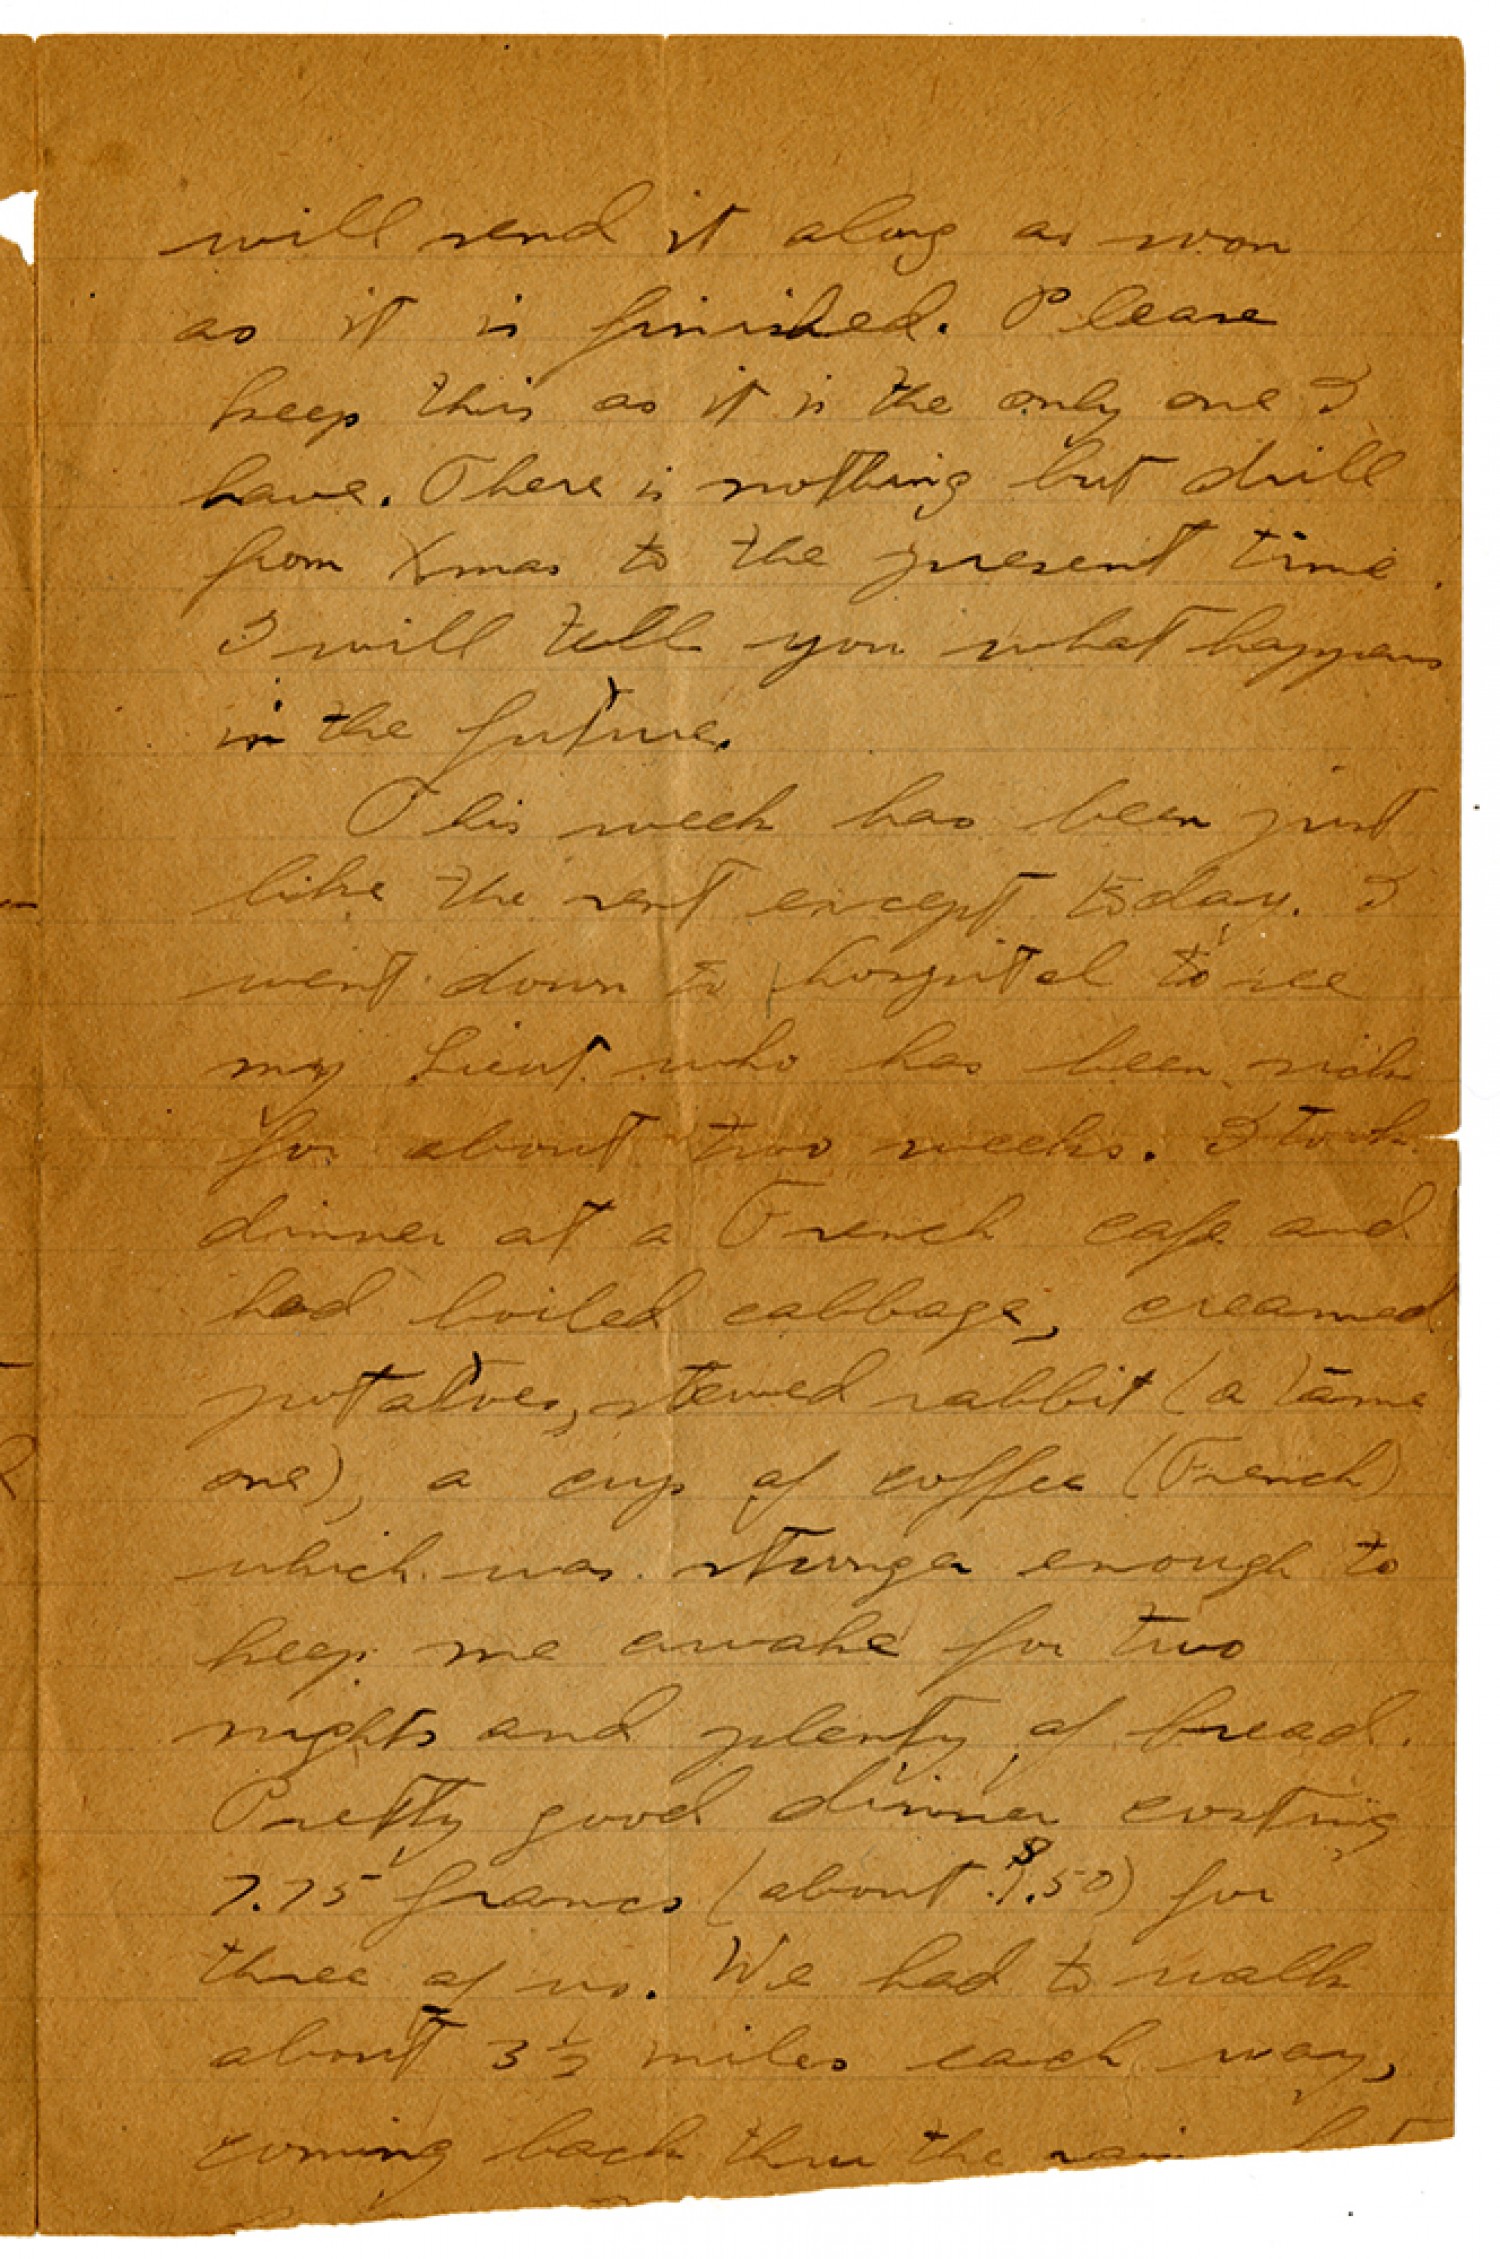 will send it along as soon
as it is finished. Please
keep this as it is the only one I
have. There is nothing but drill
from Xmas to the present time.
I will tell you what happens
in the future.
This week has been just
like the rest except today. I
went down to hospital to see
my Lieut. who has been sick
for about two weeks. I took
dinner at a French cafe and
had boiled cabbage, creamed
potatoes, stewed rabbit (a tame
one), a cup of coffee (French)
which was stronge enough to
keep me awake for two
nights and plenty of bread.
Pretty good dinner costing
7.75 francs (about $1.50) for
three of us. We had to walk
about 3 1/2 miles each way,
coming back thru the rain